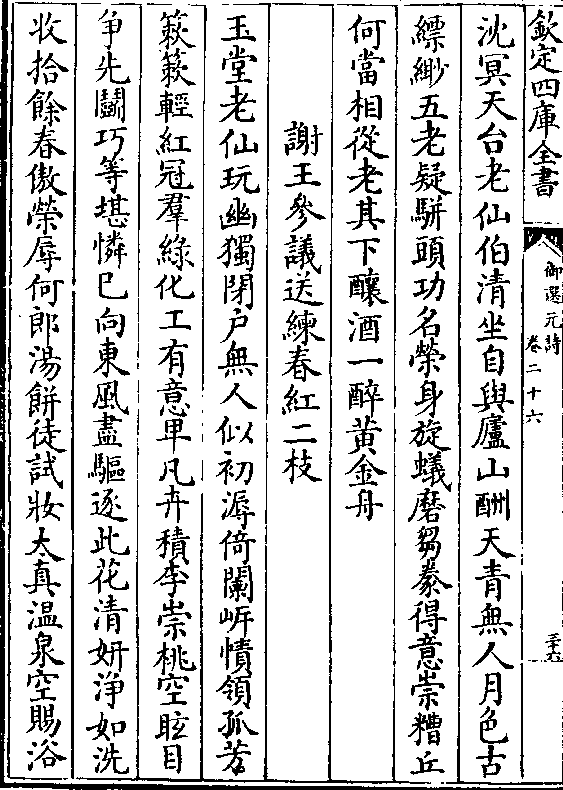 欽定四庫全書
御選元詩
卷二十六
三十六
沈冥天台老仙伯清坐自與廬山酬天青無人月色古
縹緲五老疑駢頭功名榮身旋蟻磨芻豢得意崇糟丘
何當相從老其下釀酒一醉黃金舟
謝王參議送練春紅二枝
玉堂老仙玩幽獨閉戶無人似初溽倚闌岸幘領孤芳
簌簌輕紅冠羣綠化工有意畀凡卉積李崇桃空眩目
争先鬬巧等堪憐巳向東風盡驅逐此花清妍浄如洗
收拾餘春傲榮辱何郎湯餅徒試妝太真温泉空賜浴